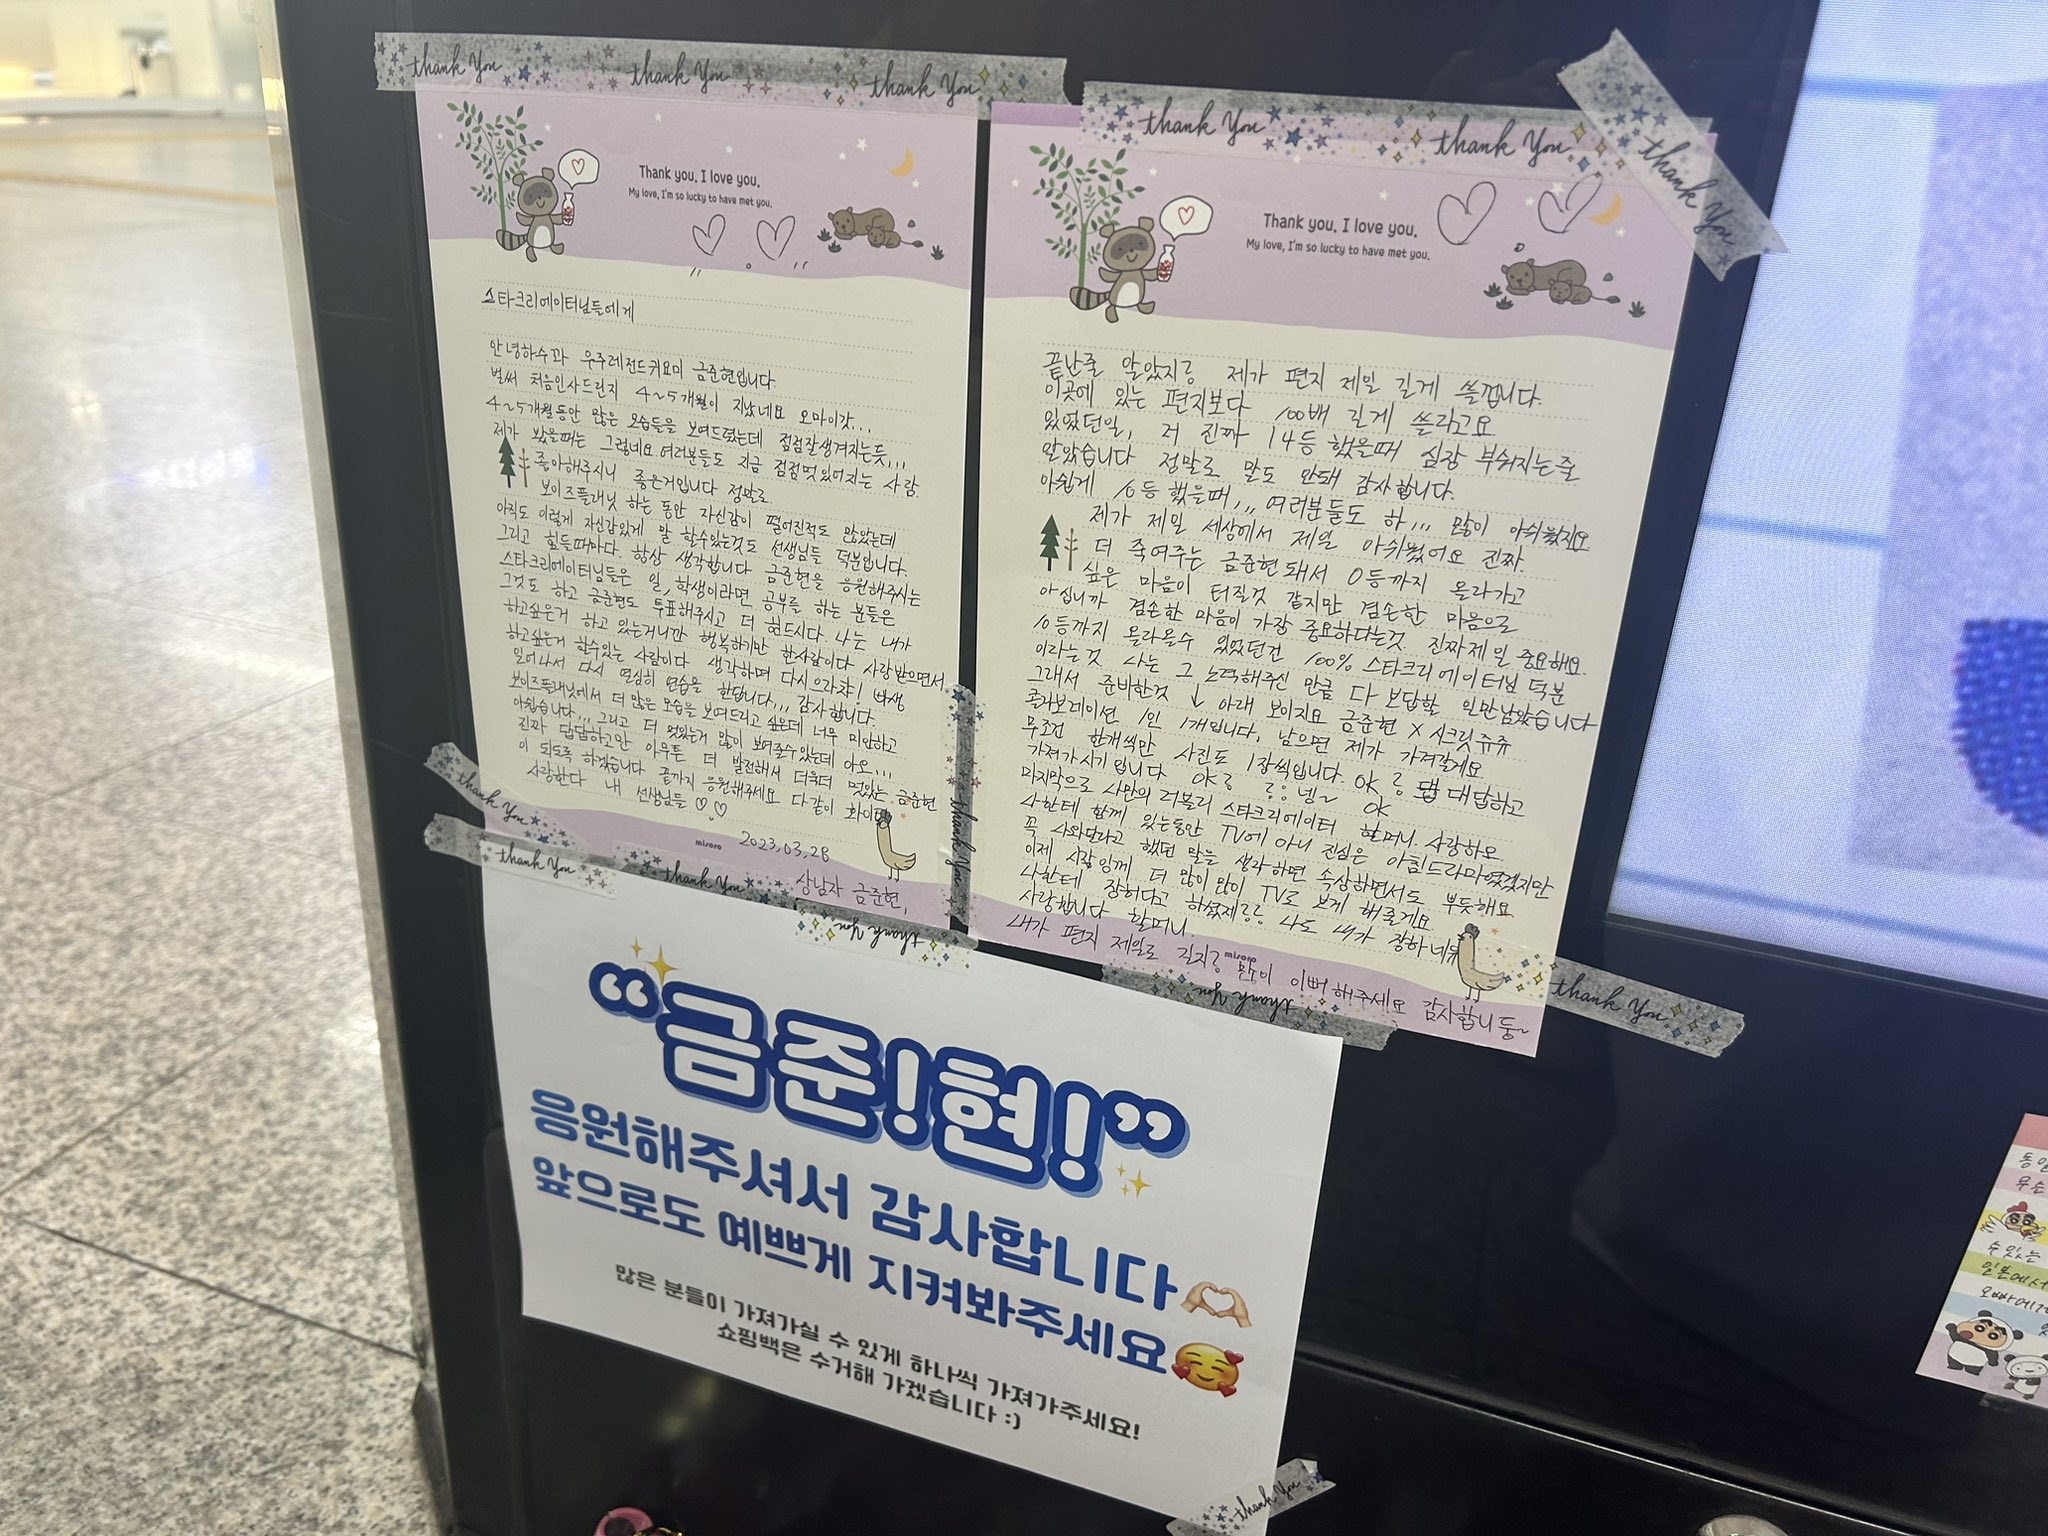 thank you thank you thank you
Thank you. I love you.
My love, I'm so lucky to have met you.
스타크리에이터님들에게
안녕하수콰 우주레전드귀요미 금준현입니다
벌써 처음인사드린지 4~5개월이 지났네요 오마이갓...
4~5개월동안 많은 모습들을 보여드렸는데 점점잘생겨지는듯,,,
제가 봤을때는 그렇네요 여러분들도 지금 점점멋있어지는 사람
좋아해주시니 좋은거입니다 정말로
보이즈플래닛 하는 동안 자신감이 떨어진적도 많았는데
아직도 이렇게 자신감있게 말 할수있는것도 선생님들 덕분입니다.
그리고 힘들때마다. 항상 생각합니다 금준현을 응원해주시는
스타크리에이터님들은 일, 학생이라면 공부를 하는 분들은
그것도 하고 금준현도 투표해주시고 더 힘드시다. 나는 내가
하고싶은거 하고 있는거니깐 행복하기만 한사람이다 사랑받으면서
하고싶은거 할수있는 사람이다 생각하며 다시으라챠! 빠샤
일어나서 다시 열심히 연습을 한답니다,,, 감사합니다
보이즈플래닛에서 더 많은 모습을 보여드리고 싶은데 너무 미안하고
아쉽습니다,,, 그리고 더 멋있는거 많이 보여줄수있는데 아오,,,
진짜 답답하고만 아무튼 더 발전해서 더욱더 멋있는 금준현
이 되도록 하겠습니다 끝까지 응원해주세요 다같이 화이팅
사랑한다 내 선생님들 ♡♡
misoro 2023.03.28
상남자 금준현,
thank you thank you thank you
Thank you. I love you.
My love, I'm so lucky to have met you.
끝난줄 알았지롱 제가 편지 제일 길게 쓸껍니다.
이곳에 있는 편지보다 100배 길게 쓸라고요
있었던일, 저 진짜 14등 했을때 심장 부숴지는줄
알았습니다 정말로 말도 안돼 감사합니다.
아쉽게 10등 했을때,,, 여러분들도 하,,, 많이 아쉬웠지요
제가 제일 세상에서 제일 아쉬웠어요 진짜
더 죽여주는 금준현 돼서 0등까지 올라가고
싶은 마음이 터질것 같지만 겸손한 마음으로
아십니까 겸손한 마음이 가장 중요하다는것. 진짜제일 중요해요
10등까지 올라올수 있었던건 100% 스타크리에이터님 덕분
이라는것 나는 그 노력해주신 만큼 다 보답할 일만남았습니다
그래서 준비한것 ↓ 아래 보이지요 금준현 X 시크릿쥬쥬
콜라보레이션 1인 1개입니다. 남으면 제가 가져갈게요
무조건 한개씩만 사진도 1장씩입니다. OK ? 대답하고
가져가시기 입니다 넹~ OK
마지막으로 나만의 러블리 스타크리에이터 할머니 사랑하오
나한테 함께 있는동안 TV에 아니 진심은 아침드라마였겠지만
꼭 나와달라고 했던 말을 생각하면 속상하면서도 뿌듯해요
이제 시장님께 더 많이많이 TV로 보게 해줄게요
나한테 장하다고 하셨제 나도 내가 장하네유
사랑합니다 할머니.
내가 편지 제일로 길지롱 많이 이뻐해주세요 감사합니둥~
misoro
thank you
thank you
thank you thank you
thank you
thank you
thank you
thank you
“금준!현!”
응원해주셔서 감사합니다
앞으로도 예쁘게 지켜봐주세요
많은 분들이 가져가실 수 있게 하나씩 가져가주세요!
쇼핑백은 수거해 가겠습니다 :)
thank you
수있는
일본에서
오빠에게